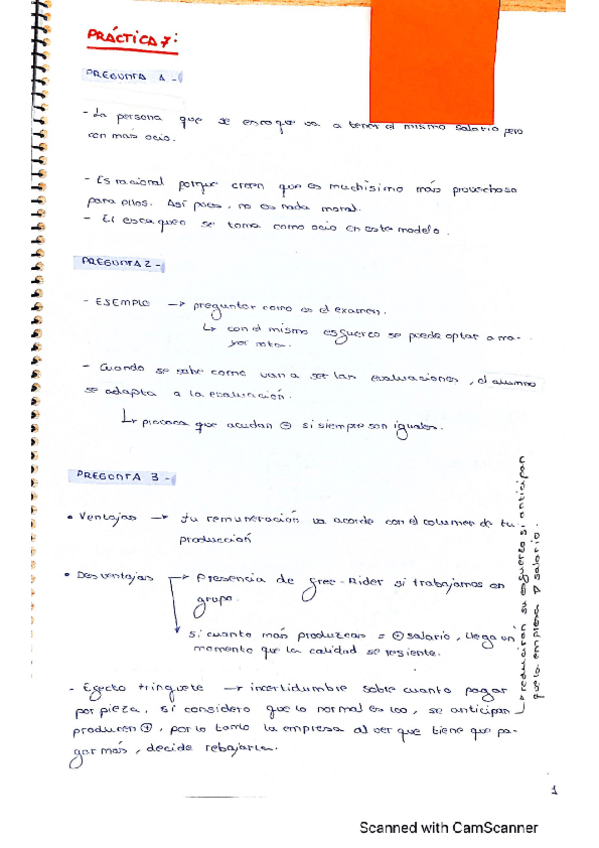 PRÁCTICA 7:
PREGUNTA 1-
- La persona que se escaquea va a tener el mismo salario pero
con más ocio.
- Es racional porque creen que es muchísimo más provechoso
para ellos. Así pues, no es nada moral.
- El escaqueo se toma como ocio en este modelo.
PREGUNTA 2-
- ESEMPLO → preguntar como es el examen.
↳ con el mismo esfuerzo se puede optar a ma-
yor nota.
- Cuando se sabe como van a ser las evaluaciones, el alumno
se adapta a la evaluación.
↳ provoca que acudan ⊖ si siempre son iguales.
PREGUNTA 3-
• Ventajas → tu remuneración va acorde con el volumen de tu
producción
• Desventajas → Presencia de free-Rider si trabajamos en
grupo.
si cuanto más produzcas = ⊕ salario, llega un
momento que la calidad se resiente.
- Efecto trinquete → incertidumbre sobre cuanto pagar
por pieza, si considero que lo normal es 100, se anticipan
producen ⊕, por lo tanto la empresa al ver que tiene que pa-
gar más, decide rebajarla.
↳ reducirán su esfuerzo si anticipan
que la empresa ▽ salario.
1
Scanned with CamScanner